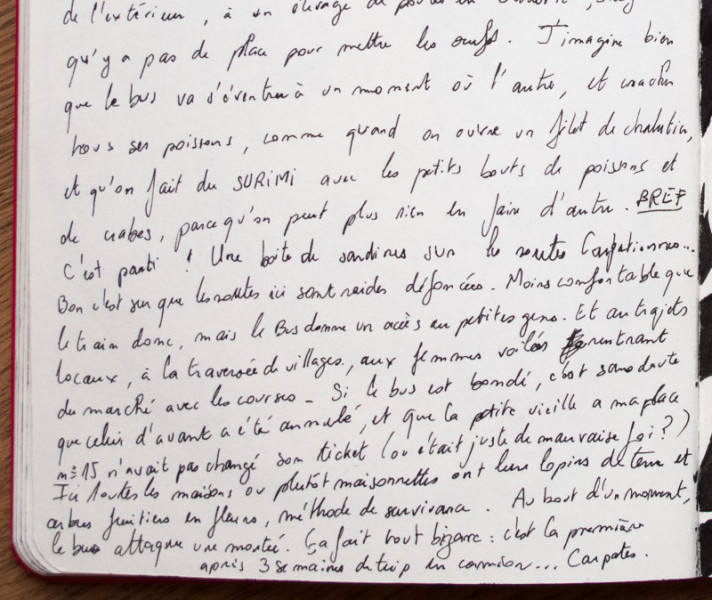 de l'extérieur, à un élevage de poules en
qu'y a pas de place pour mettre les oeufs. J'imagine bien
que le bus va s'éventrer à un moment où l'autre, et cracher
tous ses poissons, comme quand on ouvre un filet de chalutier,
et qu'on fait du SURIMI avec les petits bouts de poissons et
de crabes, parce qu'on peut plus rien en faire d'autre. BREF
C'est parti ! Une boîte de sardines sur les routes Carpatiennes...
Bon c'est sur que les routes ici sont raides défoncées. Moins comfortable que
le train donc, mais le Bus donne un accès au petites gens. Et au trajets
locaux, à la traversée de villages, aux femmes voilées rentrant
du marché avec les courses - Si le bus est bondé, c'est sans doute
que celui d'avant a été annulé, et que la petite vieille a ma place
n°15 n'avait pas changé son ticket (ou était juste de mauvaise foi ?)
Ici toutes les maisons ou plutôt maisonnettes ont leurs lopins de terre et
arbres fruitiers en fleurs, méthode de survivance. Au bout d'un moment,
le bus attaque une montée. Ça fait tout bizarre : c'est la première
après 3 semaines de trip en camion... Carpates.